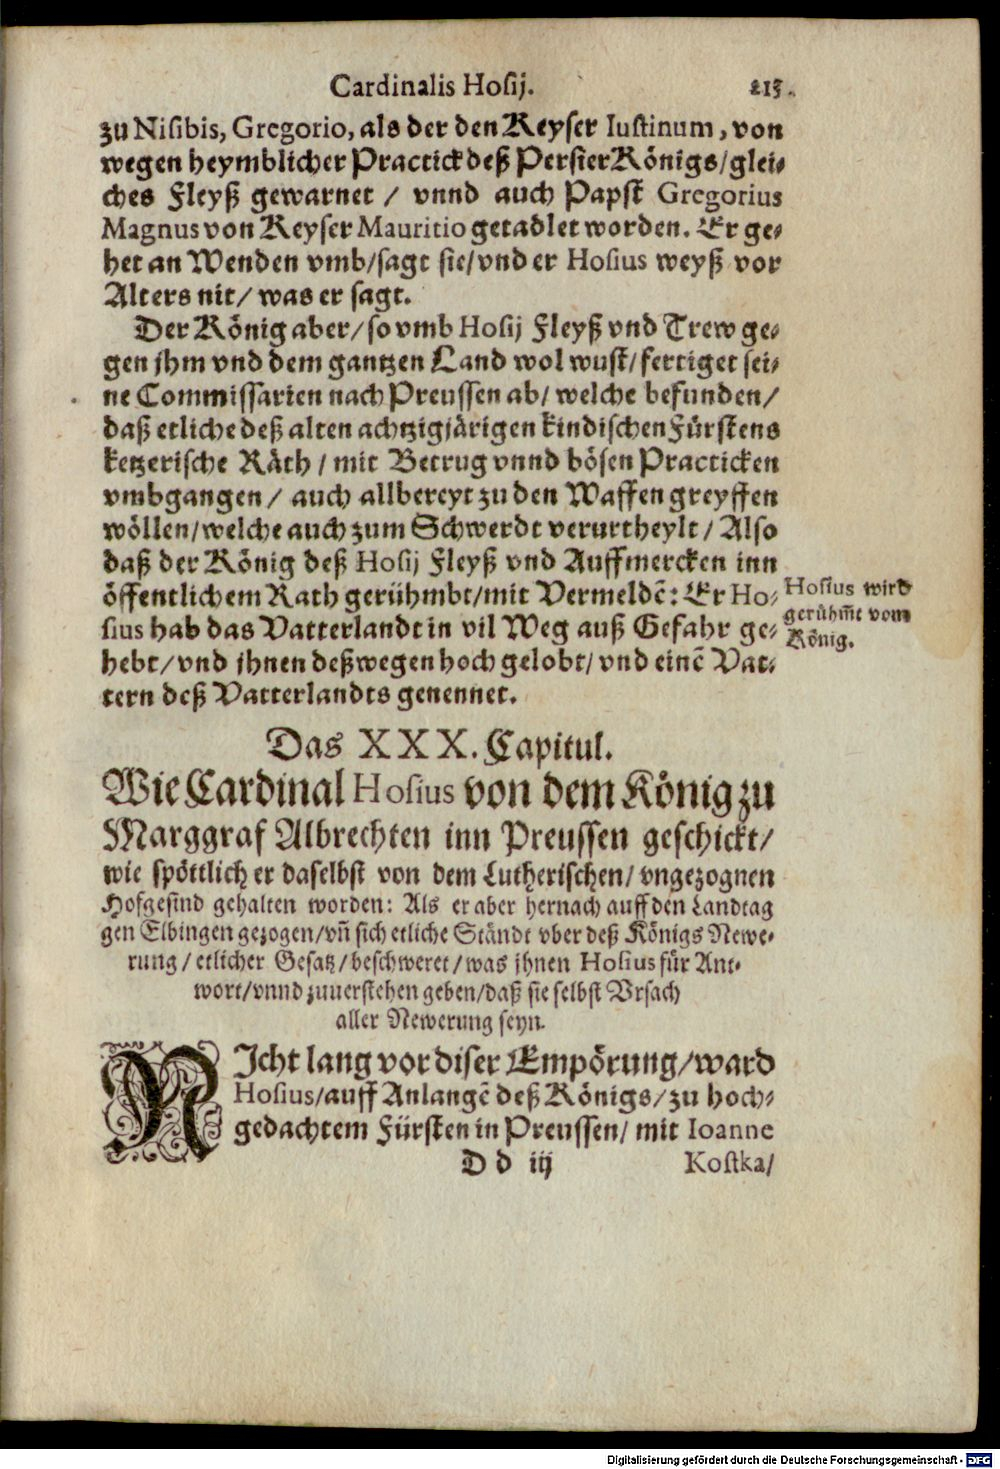 Cardinalis Hosij. 215.
zu Nisibis, Gregorio, als der den Keyser Iustinum, von
wegen heymblicher Practick deß Persier Königs/glei-
ches Fleyß gewarnet / vnnd auch Papst Gregorius
Magnus von Keyser Mauritio getadlet worden. Er ge-
het an Wenden vmb/sagt sie/vnd er Hosius weyß vor
Alters nit/ was er sagt.
Der König aber/so vmb Hosij Fleyß vnd Trew ge-
gen jhm vnd dem gantzen Land wol wust/fertiget sei-
ne Commissarien nach Preussen ab/ welche befunden/
daß etliche deß alten achtzigjärigen kindischen Fürstens
ketzerische Räth / mit Betrug vnnd bösen Practicken
vmbgangen / auch allbereyt zu den Waffen greyffen
wöllen/welche auch zum Schwerdt verurtheylt / Also
daß der König deß Hosij Fleyß vnd Auffmercken inn
öffentlichem Rath gerühmbt/mit Vermeldẽ: Er Ho-
sius hab das Vatterlandt in vil Weg auß Gefahr ge-
hebt/vnd jhnen deßwegen hoch gelobt/vnd einẽ Vat-
tern deß Vatterlandts genennet.
Hosius wird
gerühm̃t vom
König.
Das XXX. Capitul.
Wie Cardinal Hosius von dem König zu
Marggraf Albrechten inn Preussen geschickt/
wie spöttlich er daselbst von dem Lutherischen/ vngezognen
Hofgesind gehalten worden: Als er aber hernach auff den Landtag
gen Elbingen gezogen/vñ sich etliche Ständt vber deß Königs Newe-
rung/ etlicher Gesatz/beschweret/was jhnen Hosius für Ant-
wort/vnnd zuuerstehen geben/daß sie selbst Vrsach
aller Newerung seyn.
NJcht lang vor diser Empörung/ward
Hosius/auff Anlangẽ deß Königs/zu hoch-
gedachtem Fürsten in Preussen/ mit Ioanne
D d iij Kostka/
Digitalisierung gefördert durch die Deutsche Forschungsgemeinschaft - DFG